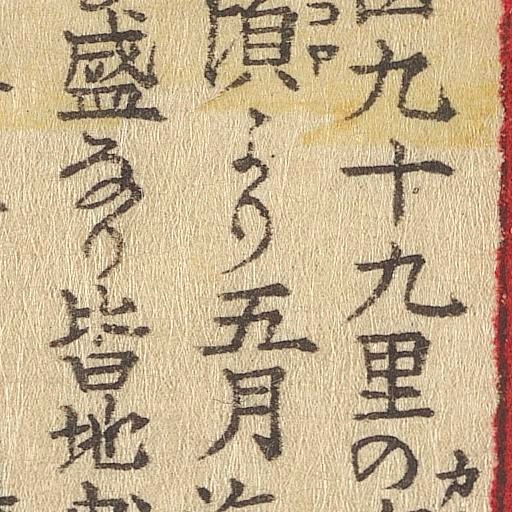 九十九里の
頃より五月
盛なり皆地